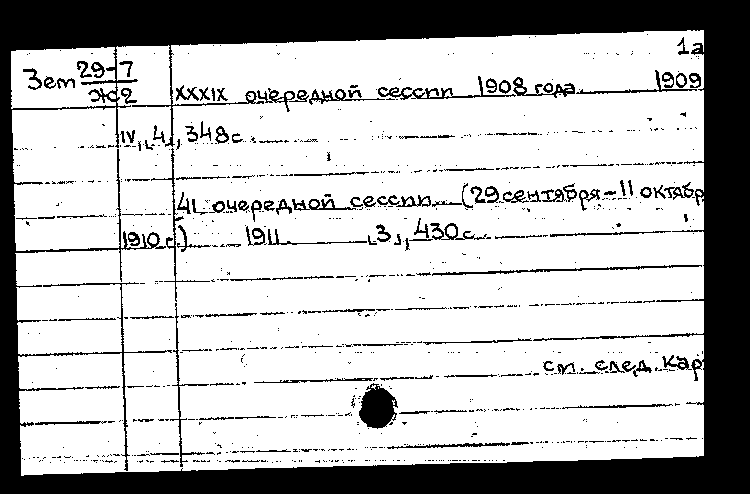 1а
Зет 29-7
Ж2
XXXIX очередной сессии 1908 года. 1909
IV, 4, 348 с.
41 очередной сессии (29 сентября – 11 октябр
1910 г.) 1911. 3, 430 с.
см. след. кар